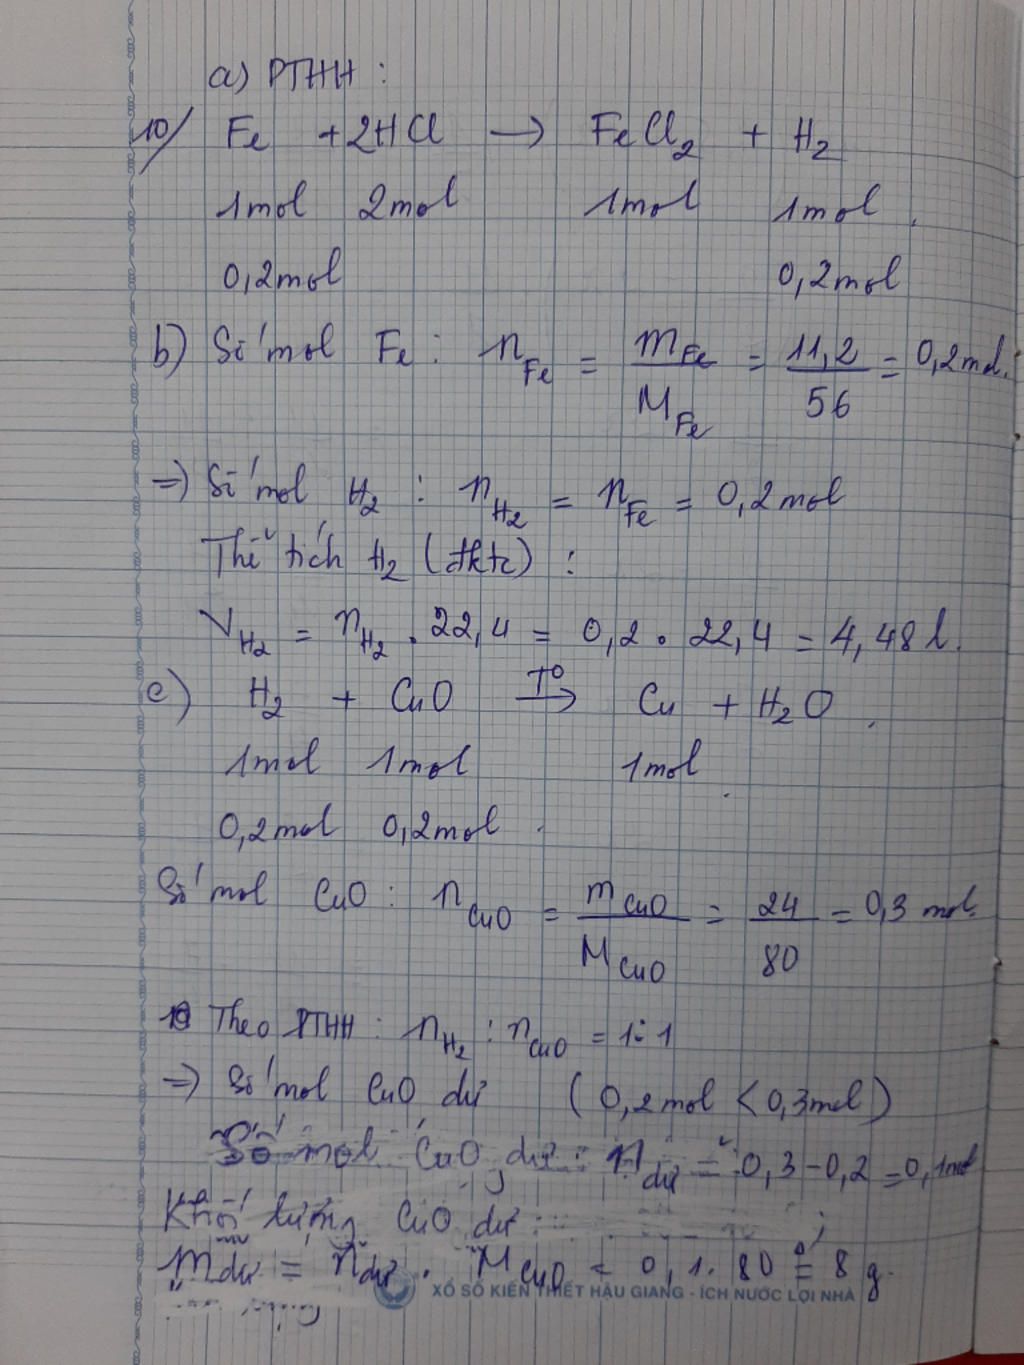 a) PTHH :
10/ Fe + 2HCl → FeCl2 + H2
1mol 2mol 1mol 1mol.
0,2mol 0,2mol
b) Số mol Fe : nFe = mFe / MFe = 11,2 / 56 = 0,2 mol.
=> Số mol H2 : nH2 = nFe = 0,2 mol
Thể tích H2 (đktc) :
VH2 = nH2 . 22,4 = 0,2 . 22,4 = 4,48 l.
c) H2 + CuO →T° Cu + H2O.
1mol 1mol 1mol
0,2mol 0,2mol.
Số mol CuO : nCuO = mCuO / MCuO = 24 / 80 = 0,3 mol.
Theo PTHH : nH2 : nCuO = 1:1
=> Số mol CuO dư (0,2mol < 0,3mol)
Số mol CuO dư : ndư = 0,3 - 0,2 = 0,1mol
Khối lượng CuO dư :
mdư = ndư . MCuO = 0,1 . 80 = 8 g.
XỔ SỐ KIẾN THIẾT HẬU GIANG - ÍCH NƯỚC LỢI NHÀ